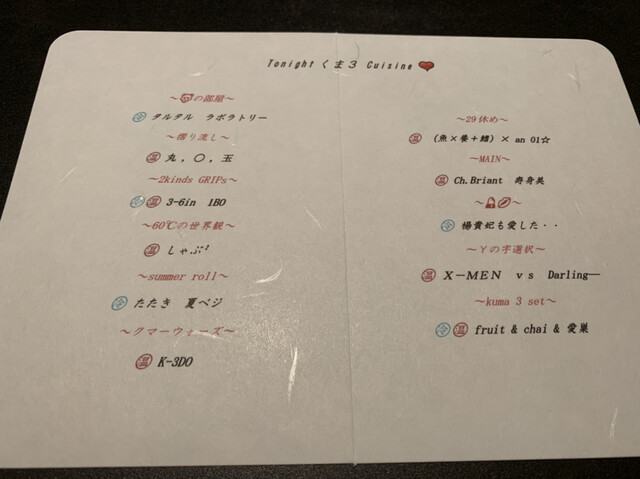 Tonight くま3 Cuisine
～🐻の部屋～
冷 タルタル ラボラトリー
～擂り流し～
温 丸，〇，玉
～2kinds GRIPs～
冷 温 3-6in 1BO
～60℃の世界観～
温 しゃぶ²
～summer roll～
冷 たたき 夏ベジ
～クマーウォーズ～
温 K-3DO
～29休め～
温 (魚×養+鱚) × an 01☆
～MAIN～
温 Ch.Briant 寿身美
～🔒～
冷 楊貴妃も愛した・・
～Yの字選択～
温 X－MEN vs Darling―
～kuma 3 set～
冷 温 fruit & chai & 愛巣